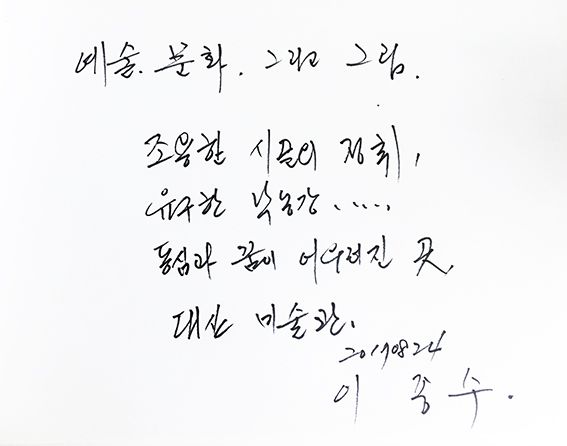 예술. 문화. 그리고 그림.
조용한 시골의 정취,
유구한 낙동강.....
동심과 꿈이 어우러진 곳,
대산 미술관.
20170824
이 종 수.